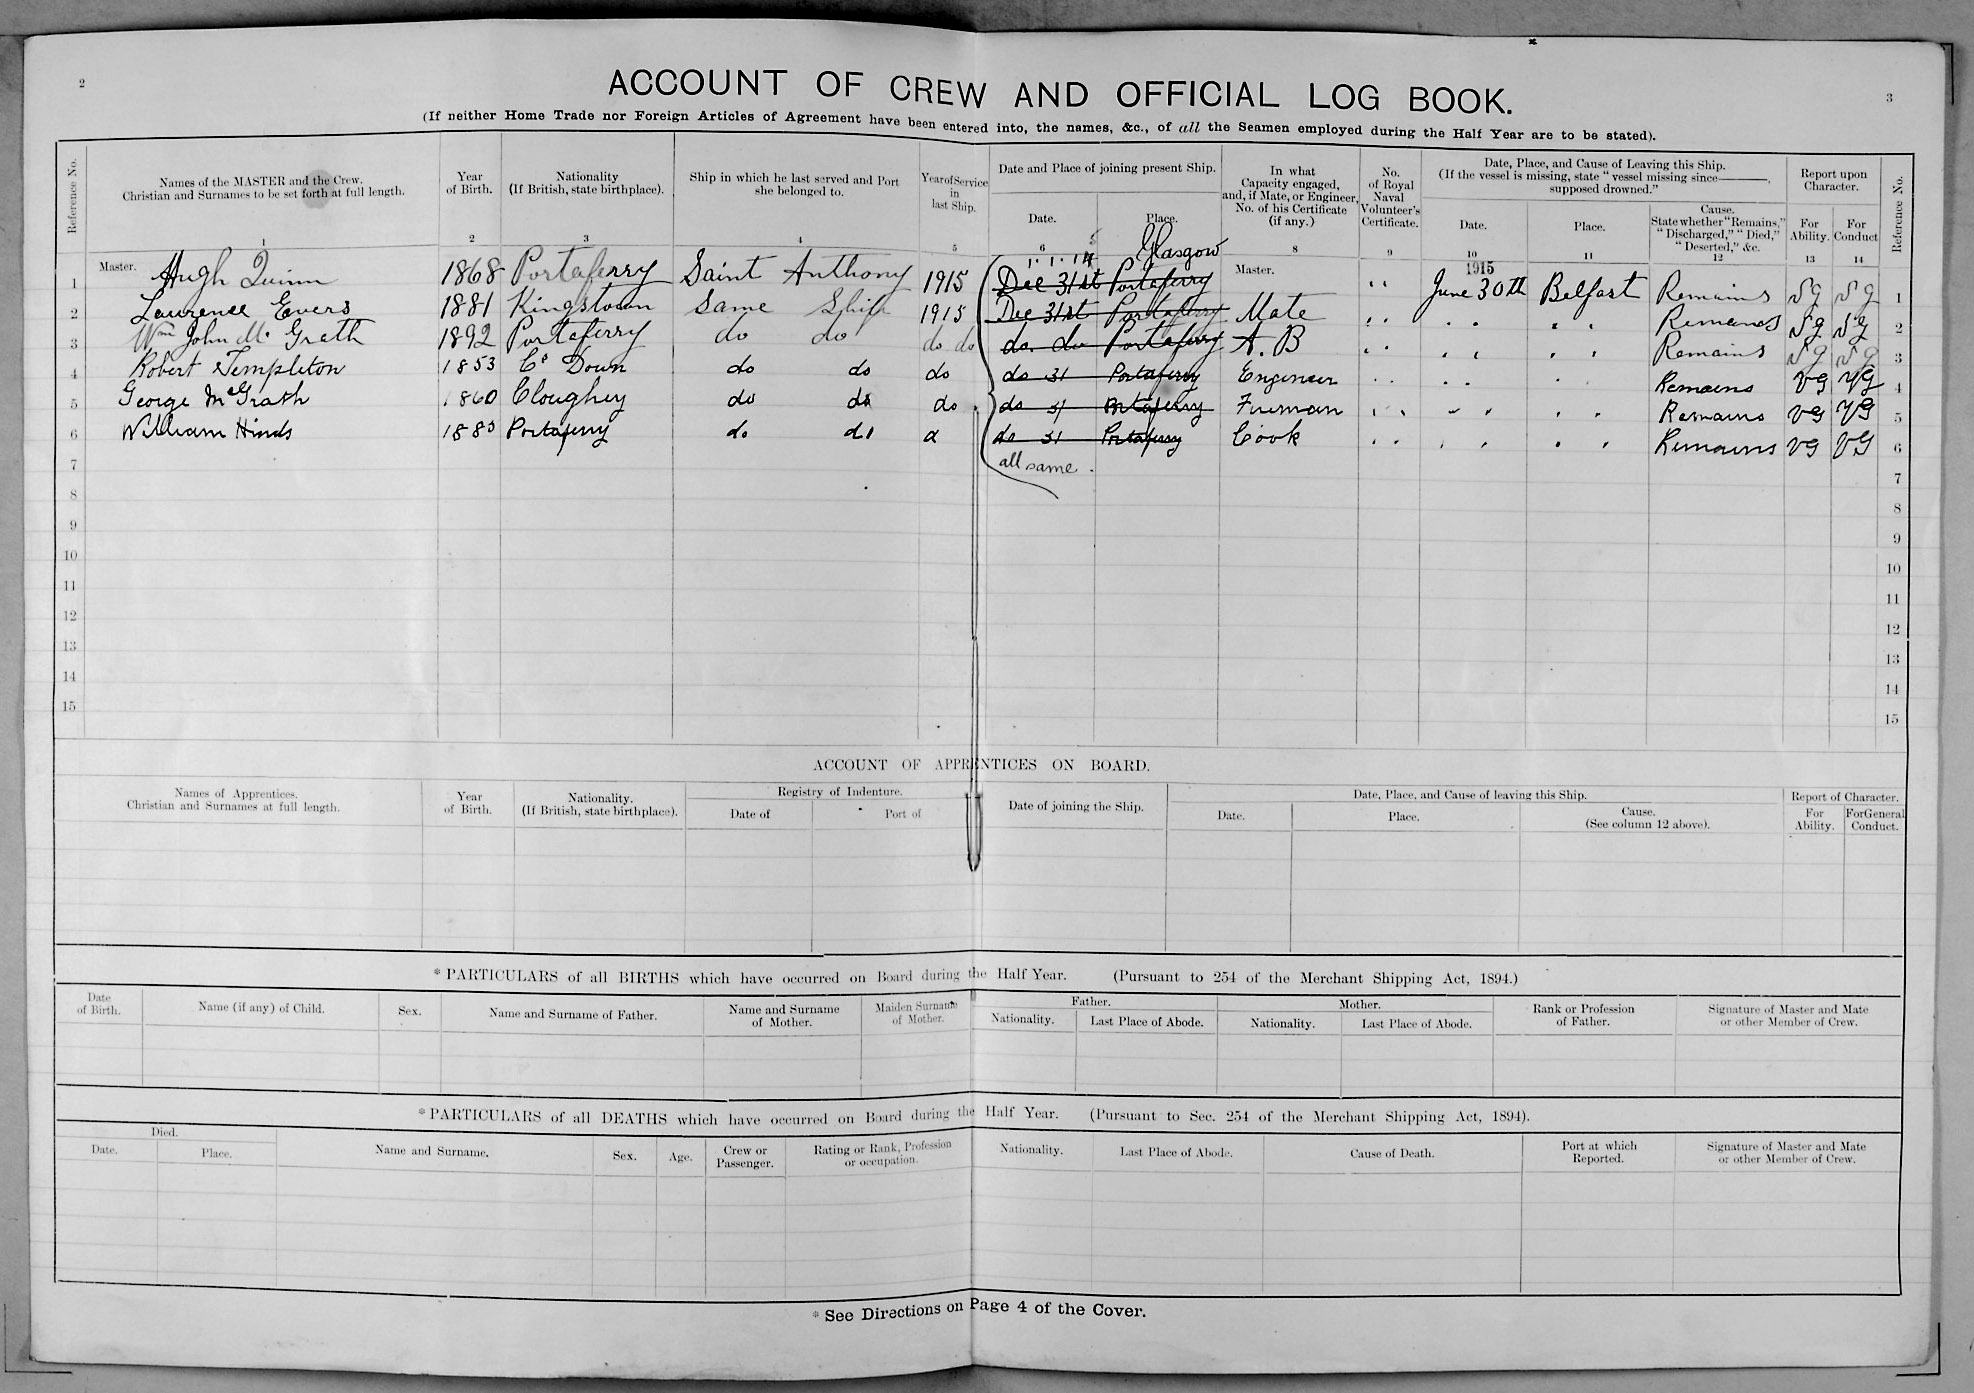 2
3
ACCOUNT OF CREW AND OFFICIAL LOG BOOK.
(If neither Home Trade nor Foreign Articles of Agreement have been entered into, the names, &c., of all the Seamen employed during the Half Year are to be stated).
Reference No.
Names of the MASTER and the Crew.
Christian and Surnames to be set forth at full length.
1
Year
of Birth.
2
Nationality
(If British, state birthplace).
3
Ship in which he last served and Port
she belonged to.
4
Year of Service
in
last Ship.
5
Date and Place of joining present Ship.
Date.
6
Place.
In what
Capacity engaged,
and, if Mate, or Engineer,
No. of his Certificate
(if any.)
8
No.
of Royal
Naval
Volunteer's
Certificate.
9
Date, Place, and Cause of Leaving this Ship.
(If the vessel is missing, state "vessel missing since———,
supposed drowned."
Date.
10
Place.
11
Cause.
State whether "Remains,"
"Discharged," "Died,"
"Deserted," &c.
12
Report upon
Character.
For
Ability.
13
For
Conduct
14
Reference No.
5
1.1.14 Glasgow
1915
1 Master. Hugh Quinn 1868 Portaferry Saint Anthony 1915 Dec 31st Portaferry Master. " June 30th Belfast Remains V g V g 1
2 Laurence Evers 1881 Kingstown Same Ship 1915 Dec 31st Portaferry Mate " " " Remains V g V g 2
3 Wm John Mc Grath 1892 Portaferry do do do do do. do Portaferry A. B " " " Remains V g V g 3
4 Robert Templeton 1853 Co Down do do do do 31 Portaferry Engineer " " " Remains VG VG 4
5 George McGrath 1860 Cloughey do do do. do 31 Portaferry Fireman " " " Remains VG VG 5
6 William Hinds 1883 Portaferry do do d do 31 Portaferry Cook " " " Remains VG VG 6
all same.
7 7
8 8
9 9
10 10
11 11
12 12
13 13
14 14
15 15
ACCOUNT OF APPRENTICES ON BOARD.
Names of Apprentices.
Christian and Surnames at full length.
Year
of Birth.
Nationality.
(If British, state birthplace).
Registry of Indenture.
Date of
Port of
Date of joining the Ship.
Date, Place, and Cause of leaving this Ship.
Date.
Place.
Cause.
(See column 12 above).
Report of Character.
For
Ability.
For General
Conduct.
* PARTICULARS of all BIRTHS which have occurred on Board during the Half Year. (Pursuant to 254 of the Merchant Shipping Act, 1894.)
Date
of Birth.
Name (if any) of Child.
Sex.
Name and Surname of Father.
Name and Surname
of Mother.
Maiden Surname
of Mother.
Father.
Nationality.
Last Place of Abode.
Mother.
Nationality.
Last Place of Abode.
Rank or Profession
of Father.
Signature of Master and Mate
or other Member of Crew.
* PARTICULARS of all DEATHS which have occurred on Board during the Half Year. (Pursuant to Sec. 254 of the Merchant Shipping Act, 1894).
Died.
Date.
Place.
Name and Surname.
Sex.
Age.
Crew or
Passenger.
Rating or Rank, Profession
or occupation.
Nationality.
Last Place of Abode.
Cause of Death.
Port at which
Reported.
Signature of Master and Mate
or other Member of Crew.
* See Directions on Page 4 of the Cover.